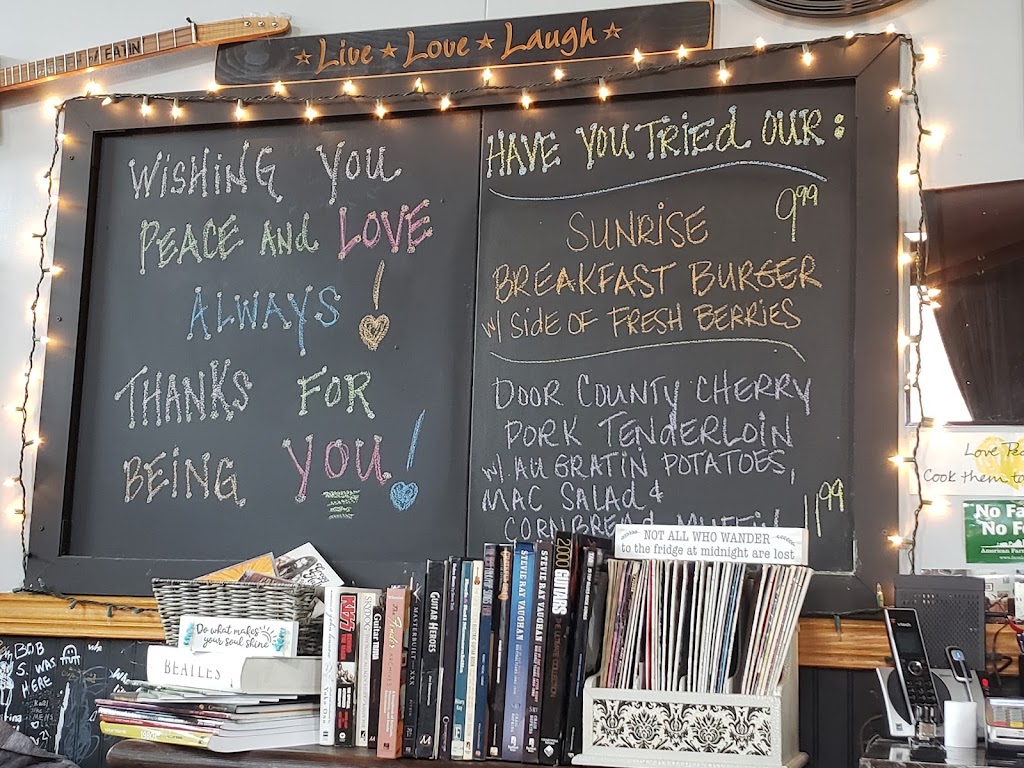 EATIN
Live ★ Love ★ Laugh
WISHING YOU
PEACE AND LOVE
ALWAYS!
THANKS FOR
BEING YOU!
HAVE YOU TRIED OUR:
SUNRISE 9.99
BREAKFAST BURGER
w/ SIDE OF FRESH BERRIES
DOOR COUNTY CHERRY
PORK TENDERLOIN
w/ AU GRATIN POTATOES,
MAC SALAD &
CORNBREAD MUFFIN 11.99
NOT ALL WHO WANDER
to the fridge at midnight are lost
Do what makes
your soul shine
BEATLES
KISS
GUITAR HEROES
STEVIE RAY VAUGHAN
STEVIE RAY VAUGHAN
2000 GUITARS
THE ULTIMATE COLLECTION
BOB
S. WAS
HERE
Cook them to
No Fa
No F
American Far
vtech